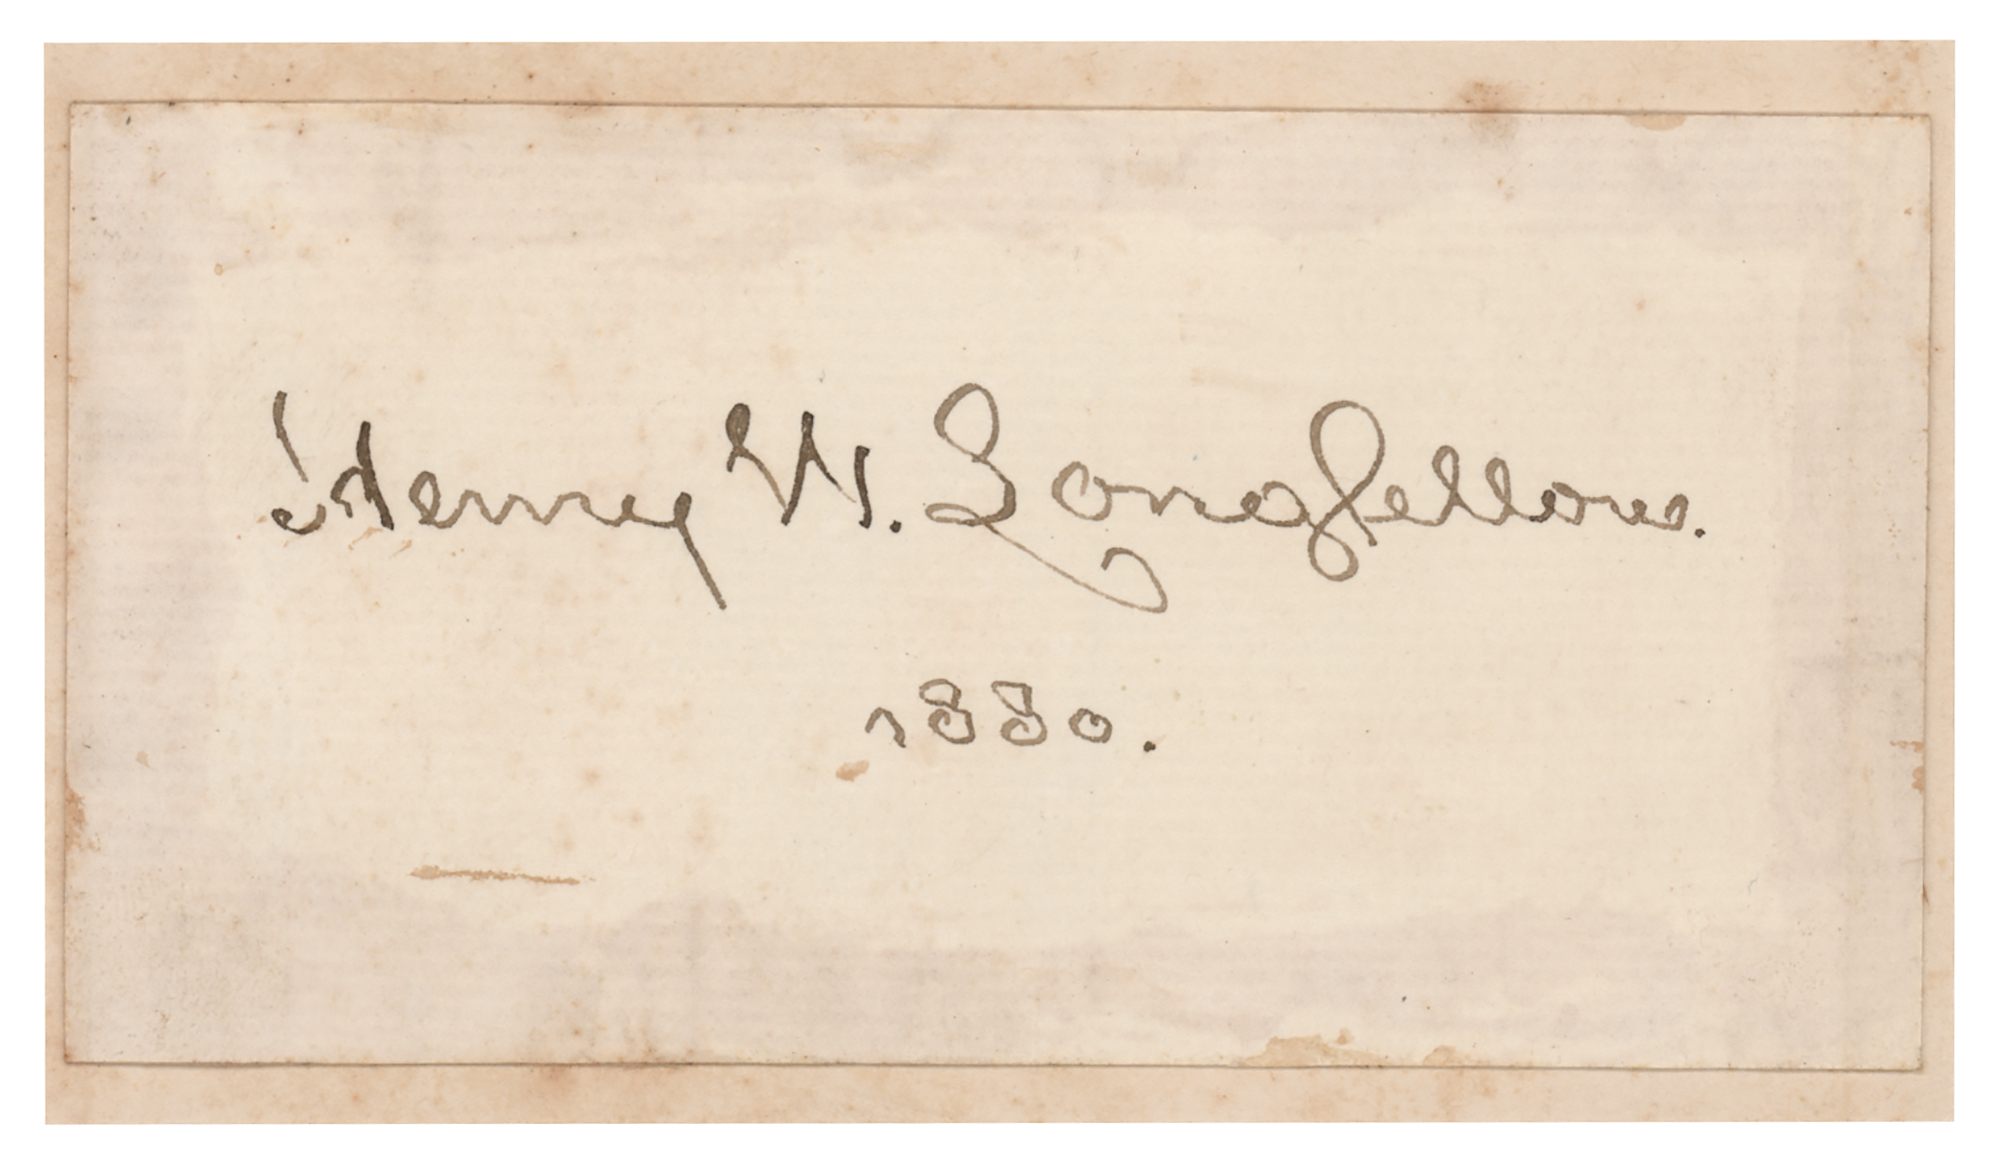 Henry W. Longfellow.
1880.